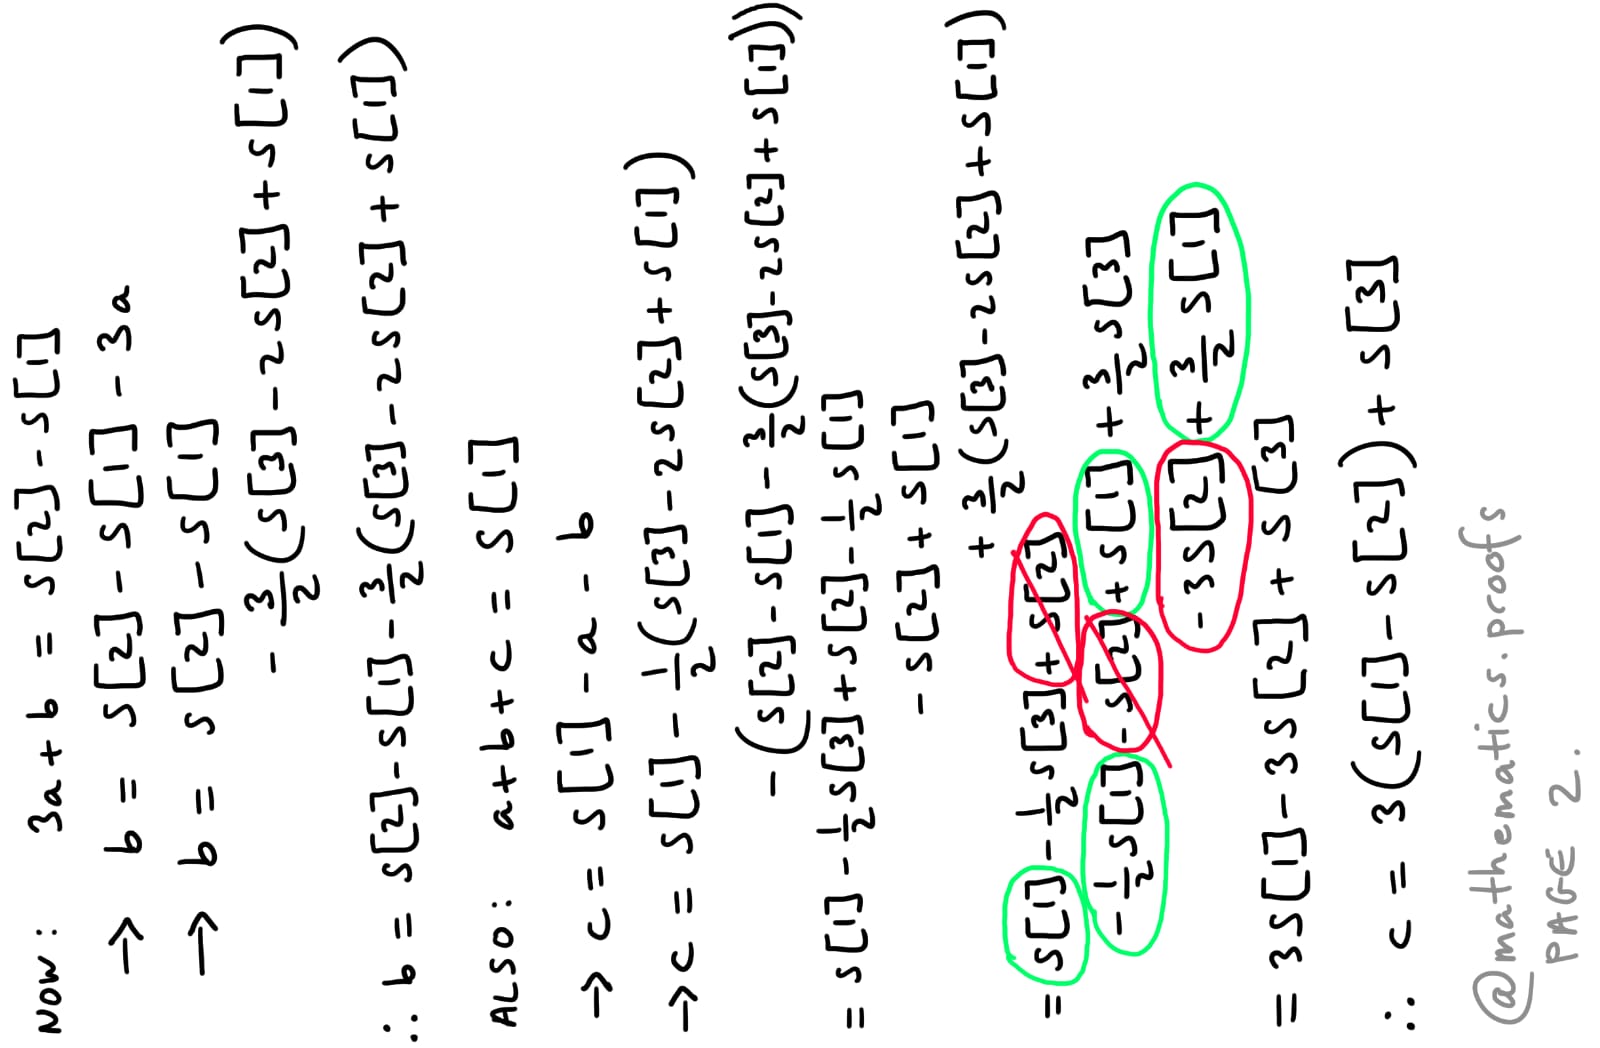 NOW: 3a + b = S[2] - S[1]
→ b = S[2] - S[1] - 3a
→ b = S[2] - S[1]
- 3/2 (S[3] - 2S[2] + S[1])
∴ b = S[2] - S[1] - 3/2 (S[3] - 2S[2] + S[1])
ALSO: a + b + c = S[1]
→ c = S[1] - a - b
→ c = S[1] - 1/2 (S[3] - 2S[2] + S[1])
- (S[2] - S[1] - 3/2 (S[3] - 2S[2] + S[1]))
= S[1] - 1/2 S[3] + S[2] - 1/2 S[1]
- S[2] + S[1]
+ 3/2 (S[3] - 2S[2] + S[1])
= S[1] - 1/2 S[3] + S[2]
- 1/2 S[1] - S[2] + S[1] + 3/2 S[3]
- 3S[2] + 3/2 S[1]
= 3S[1] - 3S[2] + S[3]
∴ c = 3(S[1] - S[2]) + S[3]
@mathematics.proofs
PAGE 2.